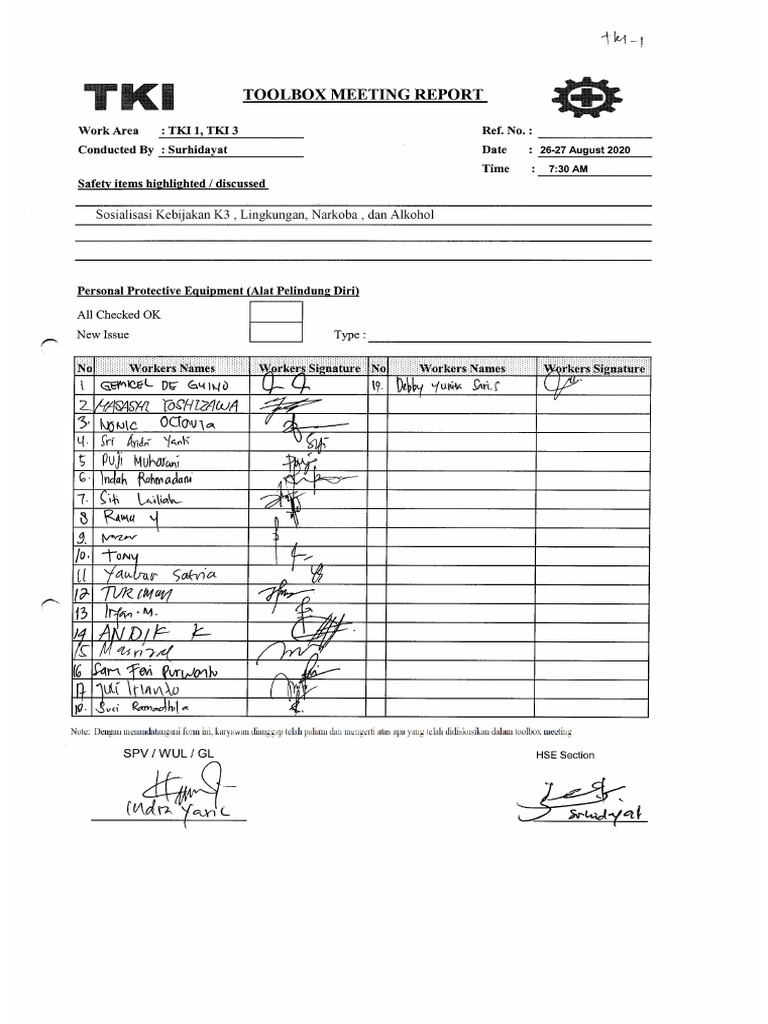 TKI-1
TKI
TOOLBOX MEETING REPORT
Work Area : TKI 1, TKI 3 Ref. No. :
Conducted By : Surhidayat Date : 26-27 August 2020
Time : 7:30 AM
Safety items highlighted / discussed
Sosialisasi Kebijakan K3 , Lingkungan, Narkoba , dan Alkohol
Personal Protective Equipment (Alat Pelindung Diri)
All Checked OK
New Issue Type :
No Workers Names Workers Signature No Workers Names Workers Signature
1 GEMICEL DE GUINO 19. Debby Yunita Sari.S
2 HASASHI YOSHIZAWA
3. NONIC OCTOVIA
4. Sri Andri Yanti
5 Puji Muharani
6. Indah Rahmadani
7. Siti Lailiah
8 Rama Y
9. Nazar
10. TONY
11 Yanuar Satria
12 TURIMAN
13 Irfan.M.
14 ANDIK K
15 Masrizal
16 Sam Feri Purwanto
17 Juli Irianto
18. Suci Ramadhila
Note: Dengan menandatangani form ini, karyawan dianggap telah paham dan mengerti atas apa yang telah didiskusikan dalam toolbox meeting
SPV / WUL / GL HSE Section
Indra Surhidayat